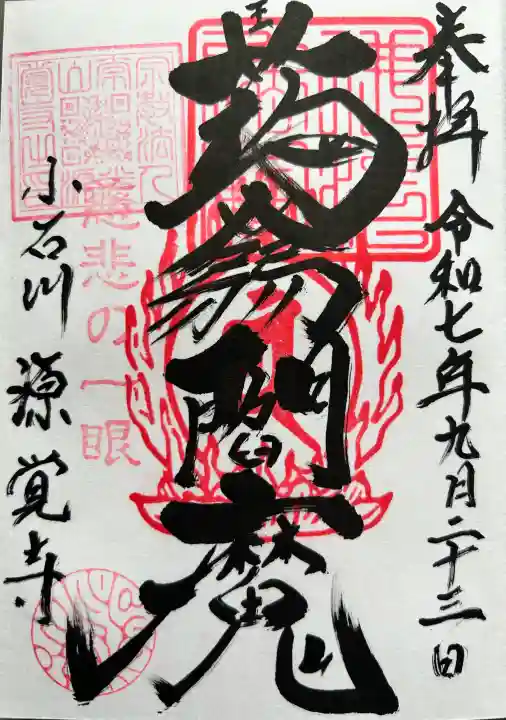 奉拝 令和七年九月二十三日
蒟蒻閻魔
慈悲の一眼
小石川 源覚寺